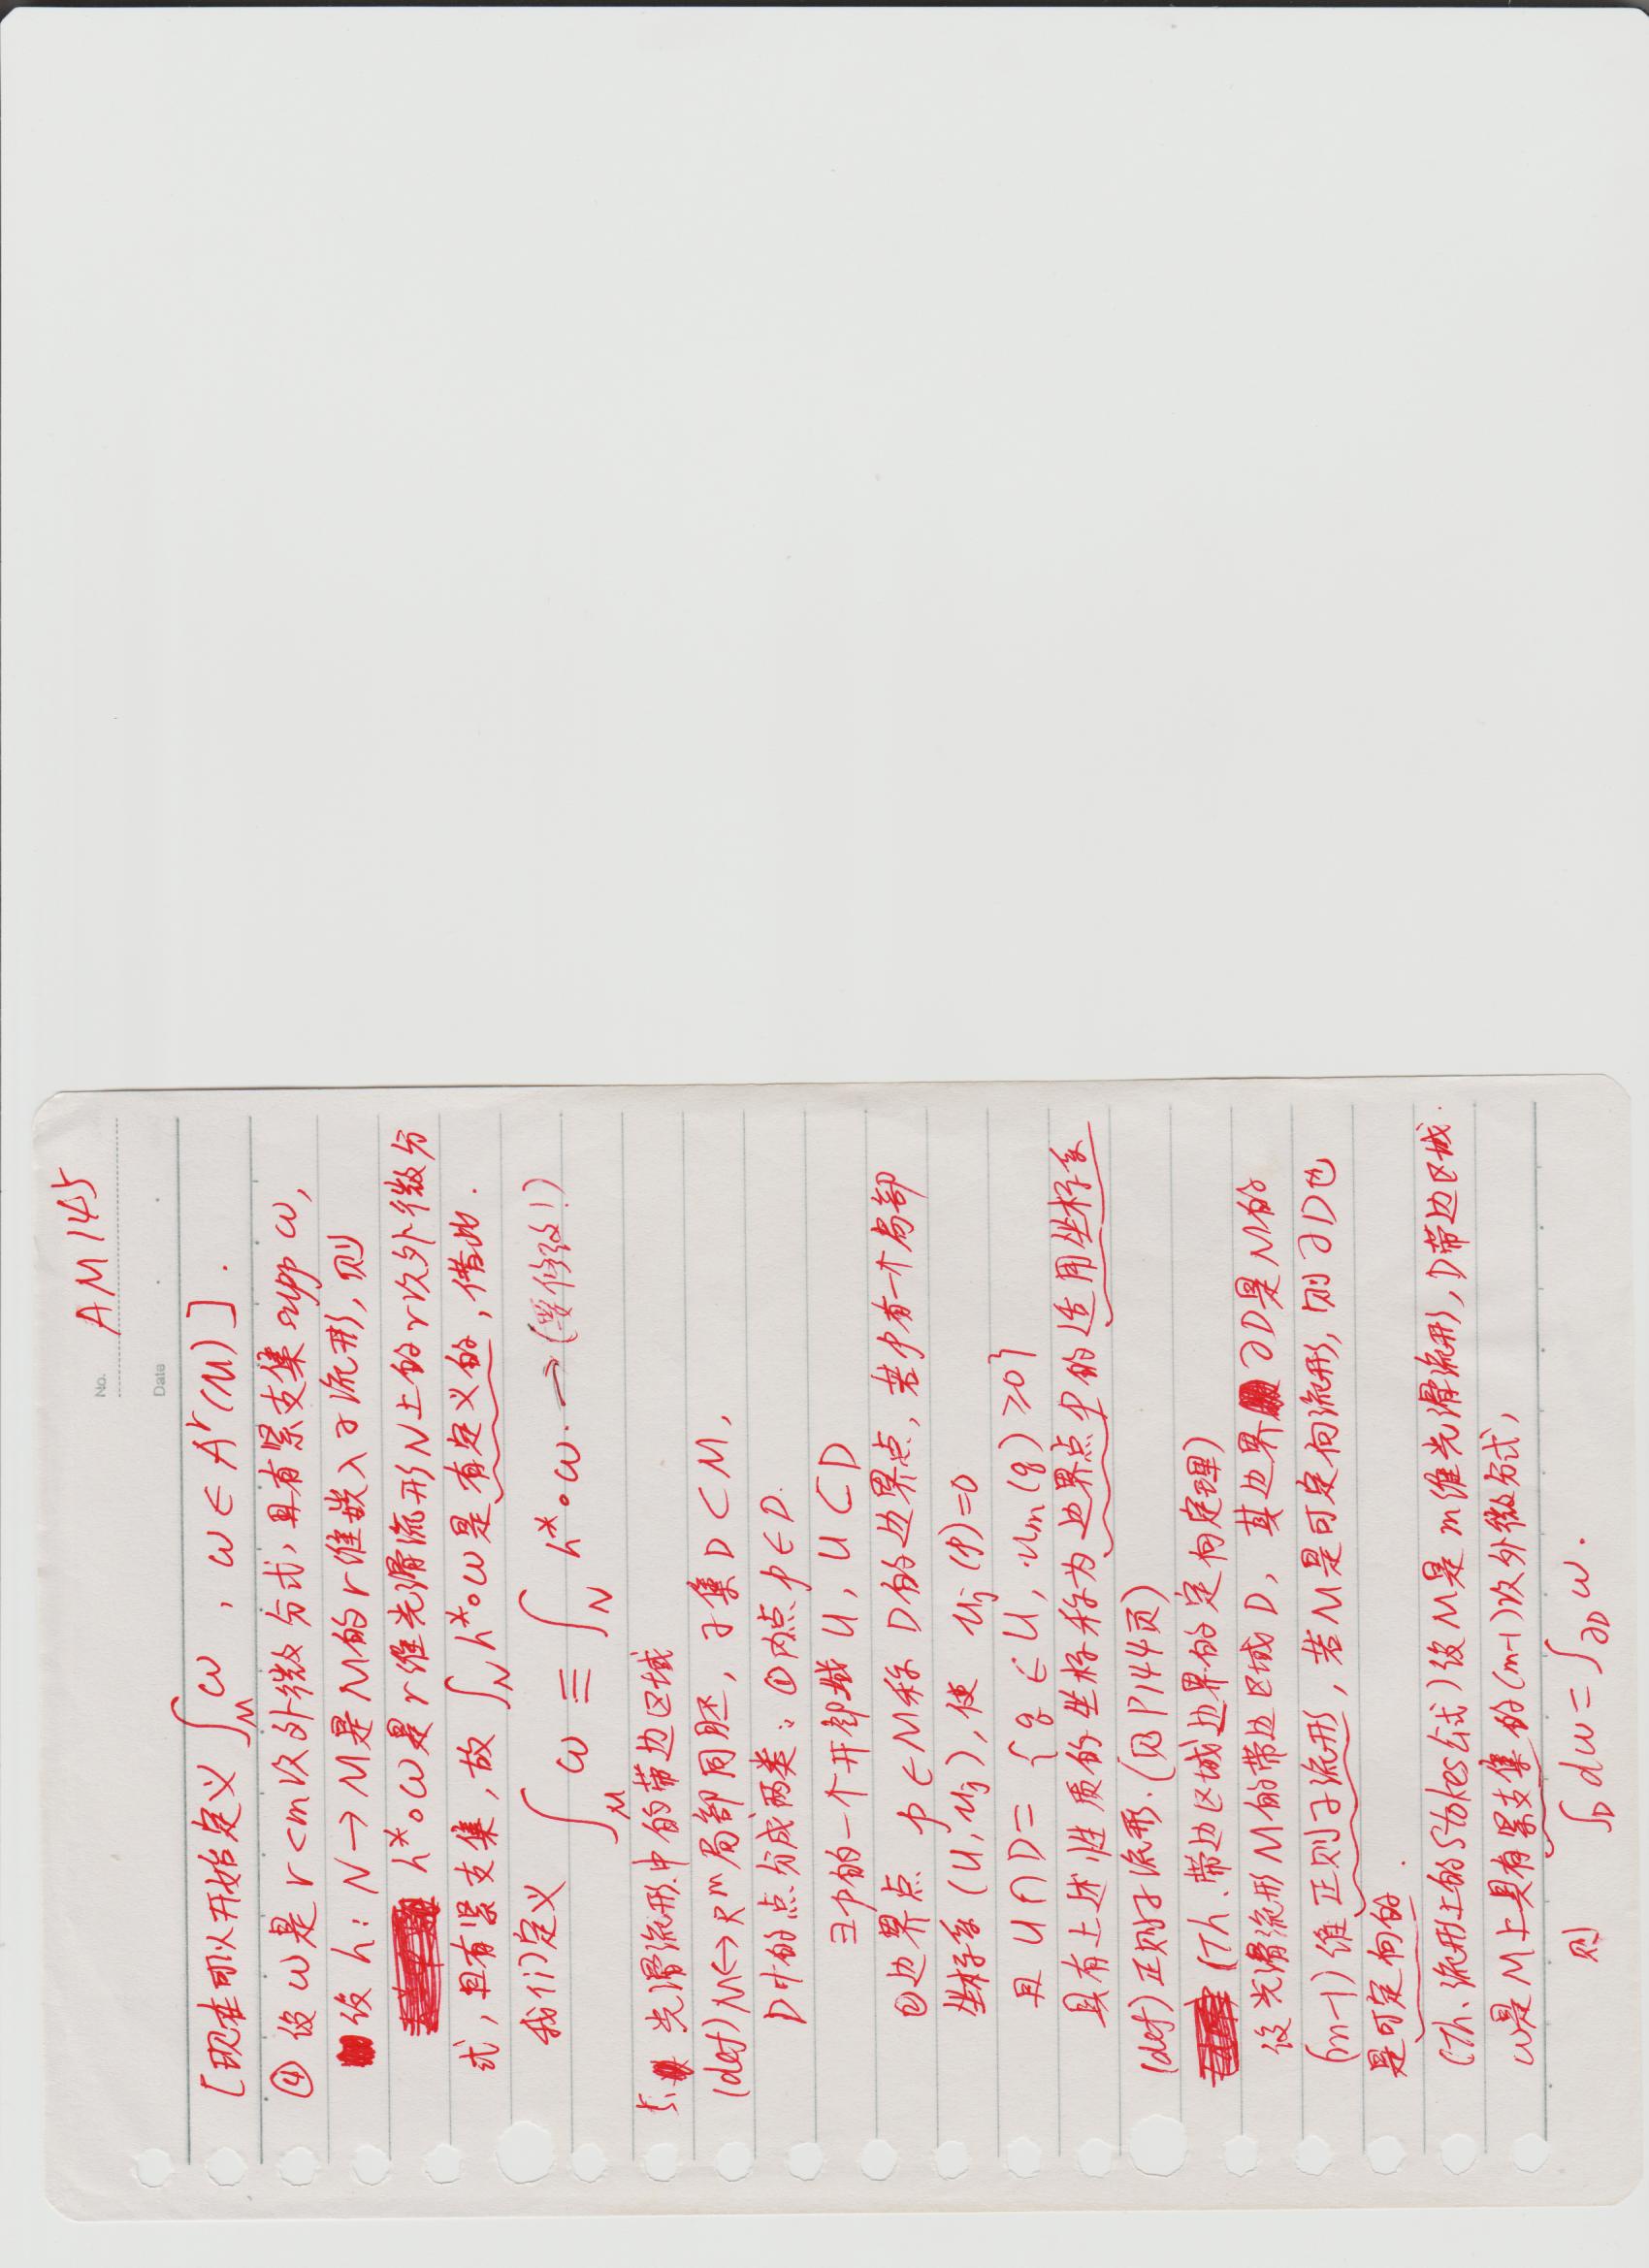 AM145
No.
Date
[现在可以开始定义 ∫_M ω , ω ∈ A^r(M) ] .
④ 设 ω 是 r<m 次外微分式, 且有紧支集 supp ω,
设 h: N → M 是 M 的 r 维嵌入子流形, 则
h*∘ω 是 r 维光滑流形 N 上的 r 次外微分
式, 且有紧支集, 故 ∫_N h*∘ω 是有定义的, 借此.
我们定义 ∫_M ω ≡ ∫_N h*∘ω. → (要修改!)
5. 光滑流形中的带边区域
(def) M↔R^m 局部同胚, 子集 D ⊂ M,
D中的点分成两类: ① 内点 p ∈ D.
∃p的一个开邻域 U, U ⊂ D
② 边界点 p ∈ M 称 D 的边界点, 若p有一个局部
坐标系 (U, u_j), 使 u_j(p)=0
且 U∩D = {q ∈ U, u_m(q) ≥0}
具有上述性质的坐标称为边界点p的适用坐标系
(def) 正则子流形. (见P144页)
(Th. 带边区域边界的定向定理)
设光滑流形 M 的带边区域 D, 其边界 ∂D 是 M 的
(m-1) 维正则子流形, 若 M 是可定向流形, 则 ∂D 也
是可定向的.
(Th. 流形上的Stokes公式) 设 M 是 m 维光滑流形, D带边区域.
ω是 M 上具有紧支集的(m-1)次外微分式,
则 ∫_D dω = ∫_∂D ω.